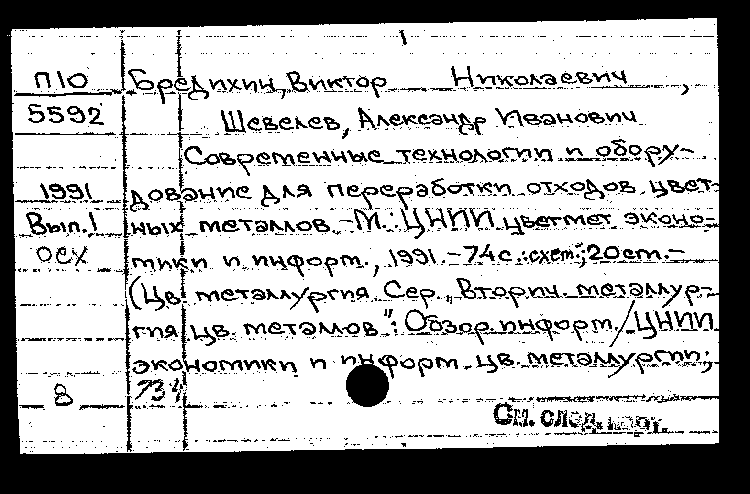 П10 Бредихин, Виктор Николаевич,
5592 Шевелев, Александр Иванович
Современные технологии и обору-
1991 дование для переработки отходов цвет-
Вып.1 ных металлов. - М.: ЦНИИ цветмет эконо-
осх мики и информ., 1991. - 74с.:схем.; 20см. -
(Цв. металлургия. Сер. „Вторич. металлур-
гия цв. металлов": Обзор. информ. / ЦНИИ
экономики и информ. цв. металлургии;
8 734
См. след. карт.